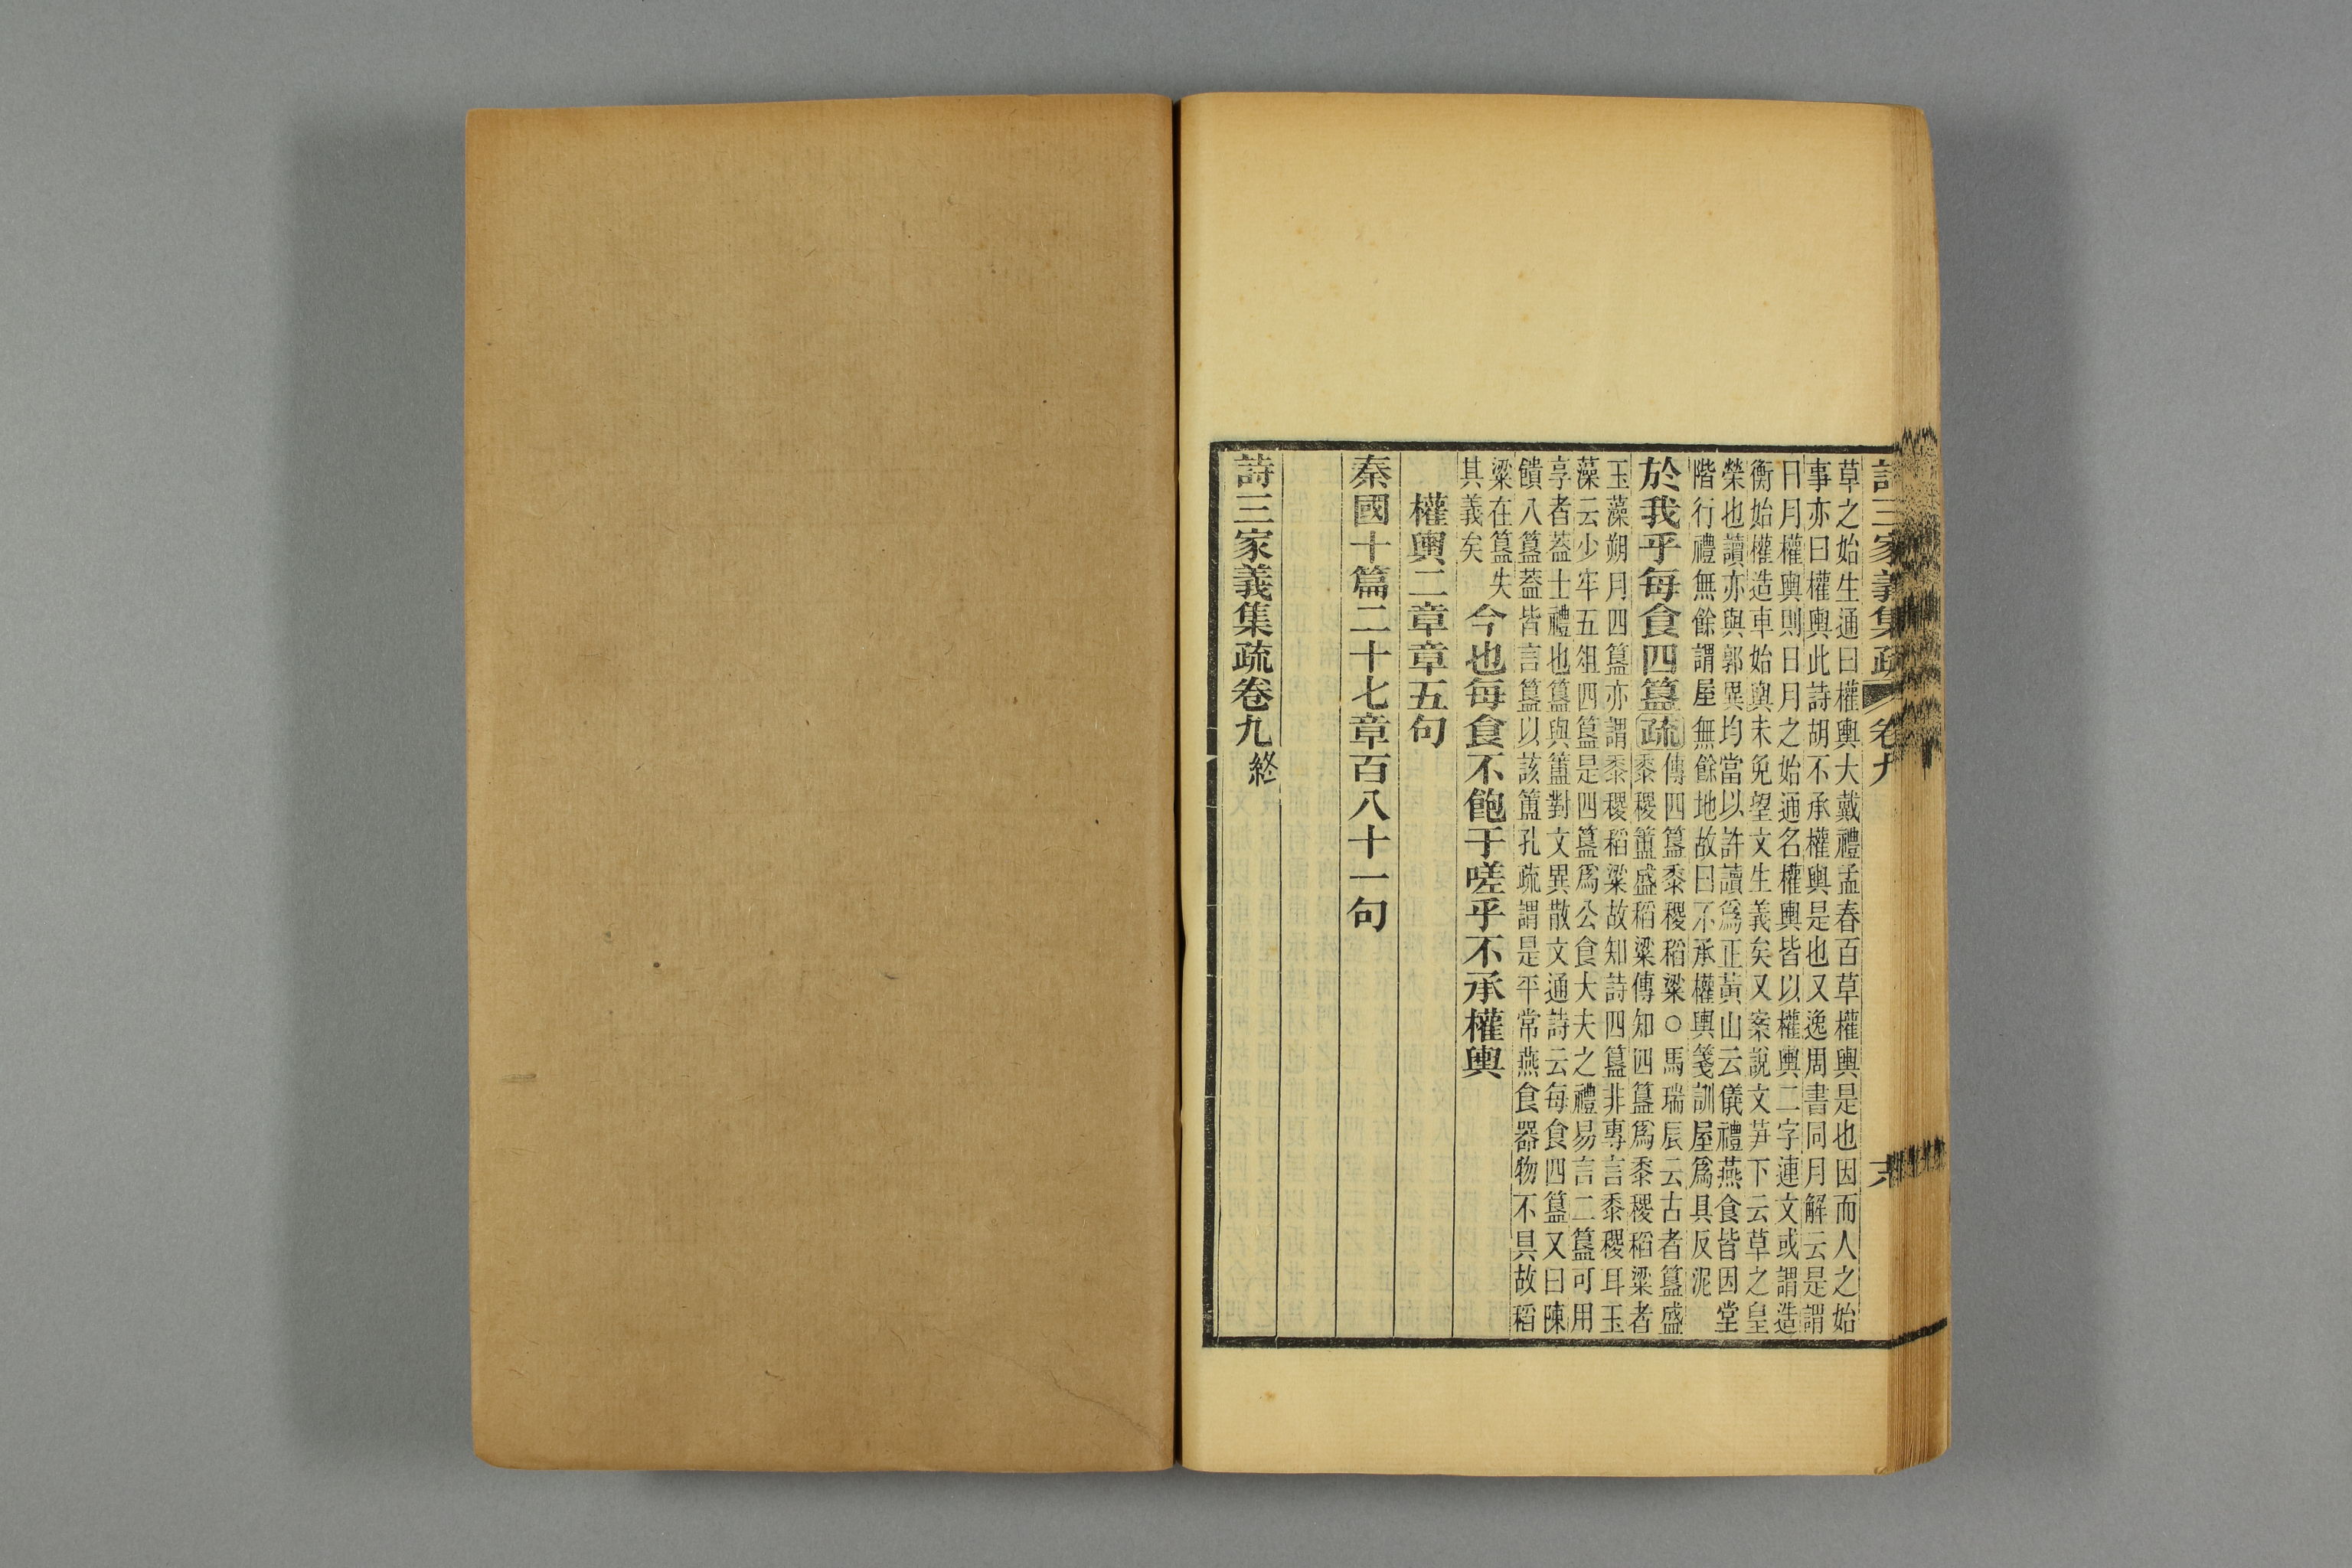 詩三家義集疏 卷九
草之始生通曰權輿大戴禮孟春百草權輿是也因而人之始
事亦曰權輿此詩胡不承權輿是也又逸周書同月解云是謂
日月權輿則日月之始通名權輿皆以權輿二字連文或謂造
衡始權造車始輿未免望文生義矣又案說文芛下云草之皇
榮也讀亦與郭異均當以許讀爲正黃山云儀禮燕食皆因堂
階行禮無餘謂屋無餘地故曰不承權輿箋訓屋爲具反泥
於我乎每食四簋疏傳四簋黍稷稻粱○馬瑞辰云古者簋盛
黍稷簠盛稻粱傳知四簋爲黍稷稻粱者
玉藻朔月四簋亦謂黍稷稻粱故知詩四簋非專言黍稷耳玉
藻云少牢五俎四簋是四簋爲公食大夫之禮易言二簋可用
享者蓋士禮也簋與簠對文異散文通詩云每食四簋又曰陳
饋八簋蓋皆言簋以該簠孔疏謂是平常燕食器物不具故稻
粱在簋失
其義矣
今也每食不飽于嗟乎不承權輿
權輿二章章五句
秦國十篇二十七章百八十一句
詩三家義集疏卷九終